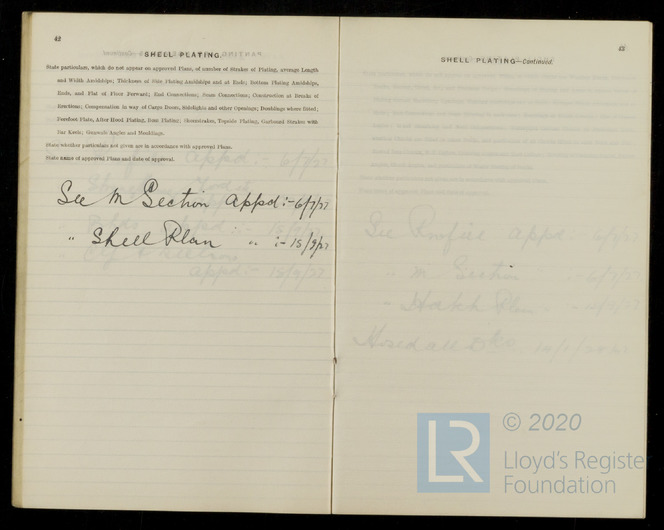 42
SHELL PLATING.
State particulars, which do not appear on approved Plans, of number of Strakes of Plating, average Length
and Width Amidships; Thickness of Side Plating Amidships and at Ends; Bottom Plating Amidships,
Ends, and Flat of Floor Forward; End Connections; Seam Connections; Construction at Breaks of
Erections; Compensation in way of Cargo Doors, Sidelights and other Openings; Doublings where fitted;
Forefoot Plate, After Hood Plating, Boss Plating; Sheerstrakes, Topside Plating, Garboard Strakes with
Bar Keels; Gunwale Angles and Mouldings.
State whether particulars not given are in accordance with approved Plans.
State name of approved Plans and date of approval.
See M Section appd :- 6/7/27
" Shell Plan " :- 15/9/27
SHELL PLATING—Continued.
LR
© 2020
Lloyd's Register
Foundation